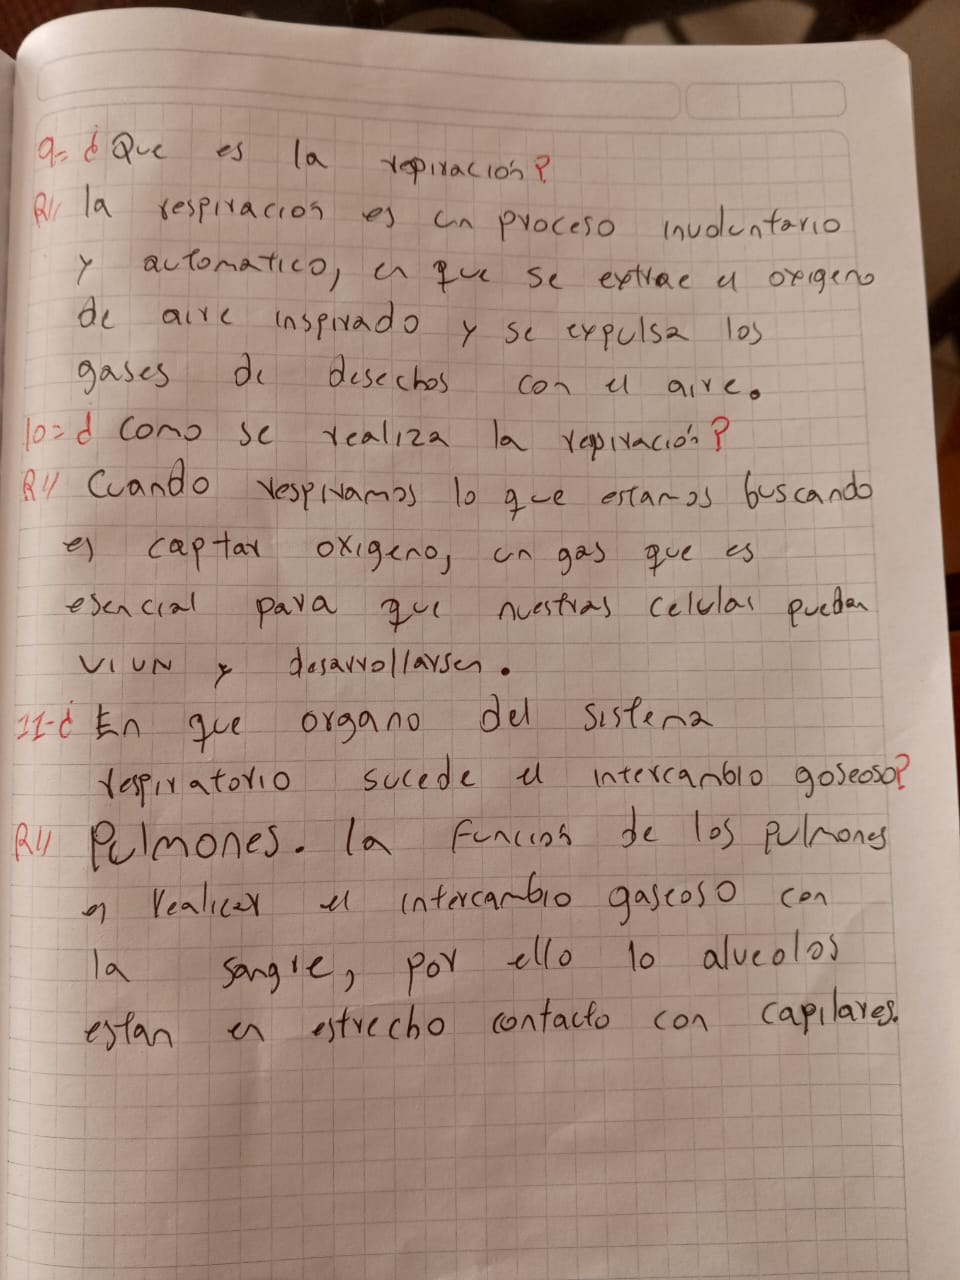 9= ¿Que es la repiración?
R// la respiracion es un proceso involuntario
y automatico, en que se extrae el oxigeno
de aire inspirado y se expulsa los
gases de desechos con el aire.
10= ¿Como se realiza la repiración?
R// Cuando respiramos lo que estamos buscando
es captar oxigeno, un gas que es
esencial para que nuestras celulas puedan
vivin y desarrollarsen.
11-¿En que organo del sistema
respiratorio sucede el intercambio goseoso?
R// Pulmones. la Funcion de los pulmones
es realizar el intercambio gascoso con
la sangre, por ello lo alveolos
estan en estrecho contacto con capilares.